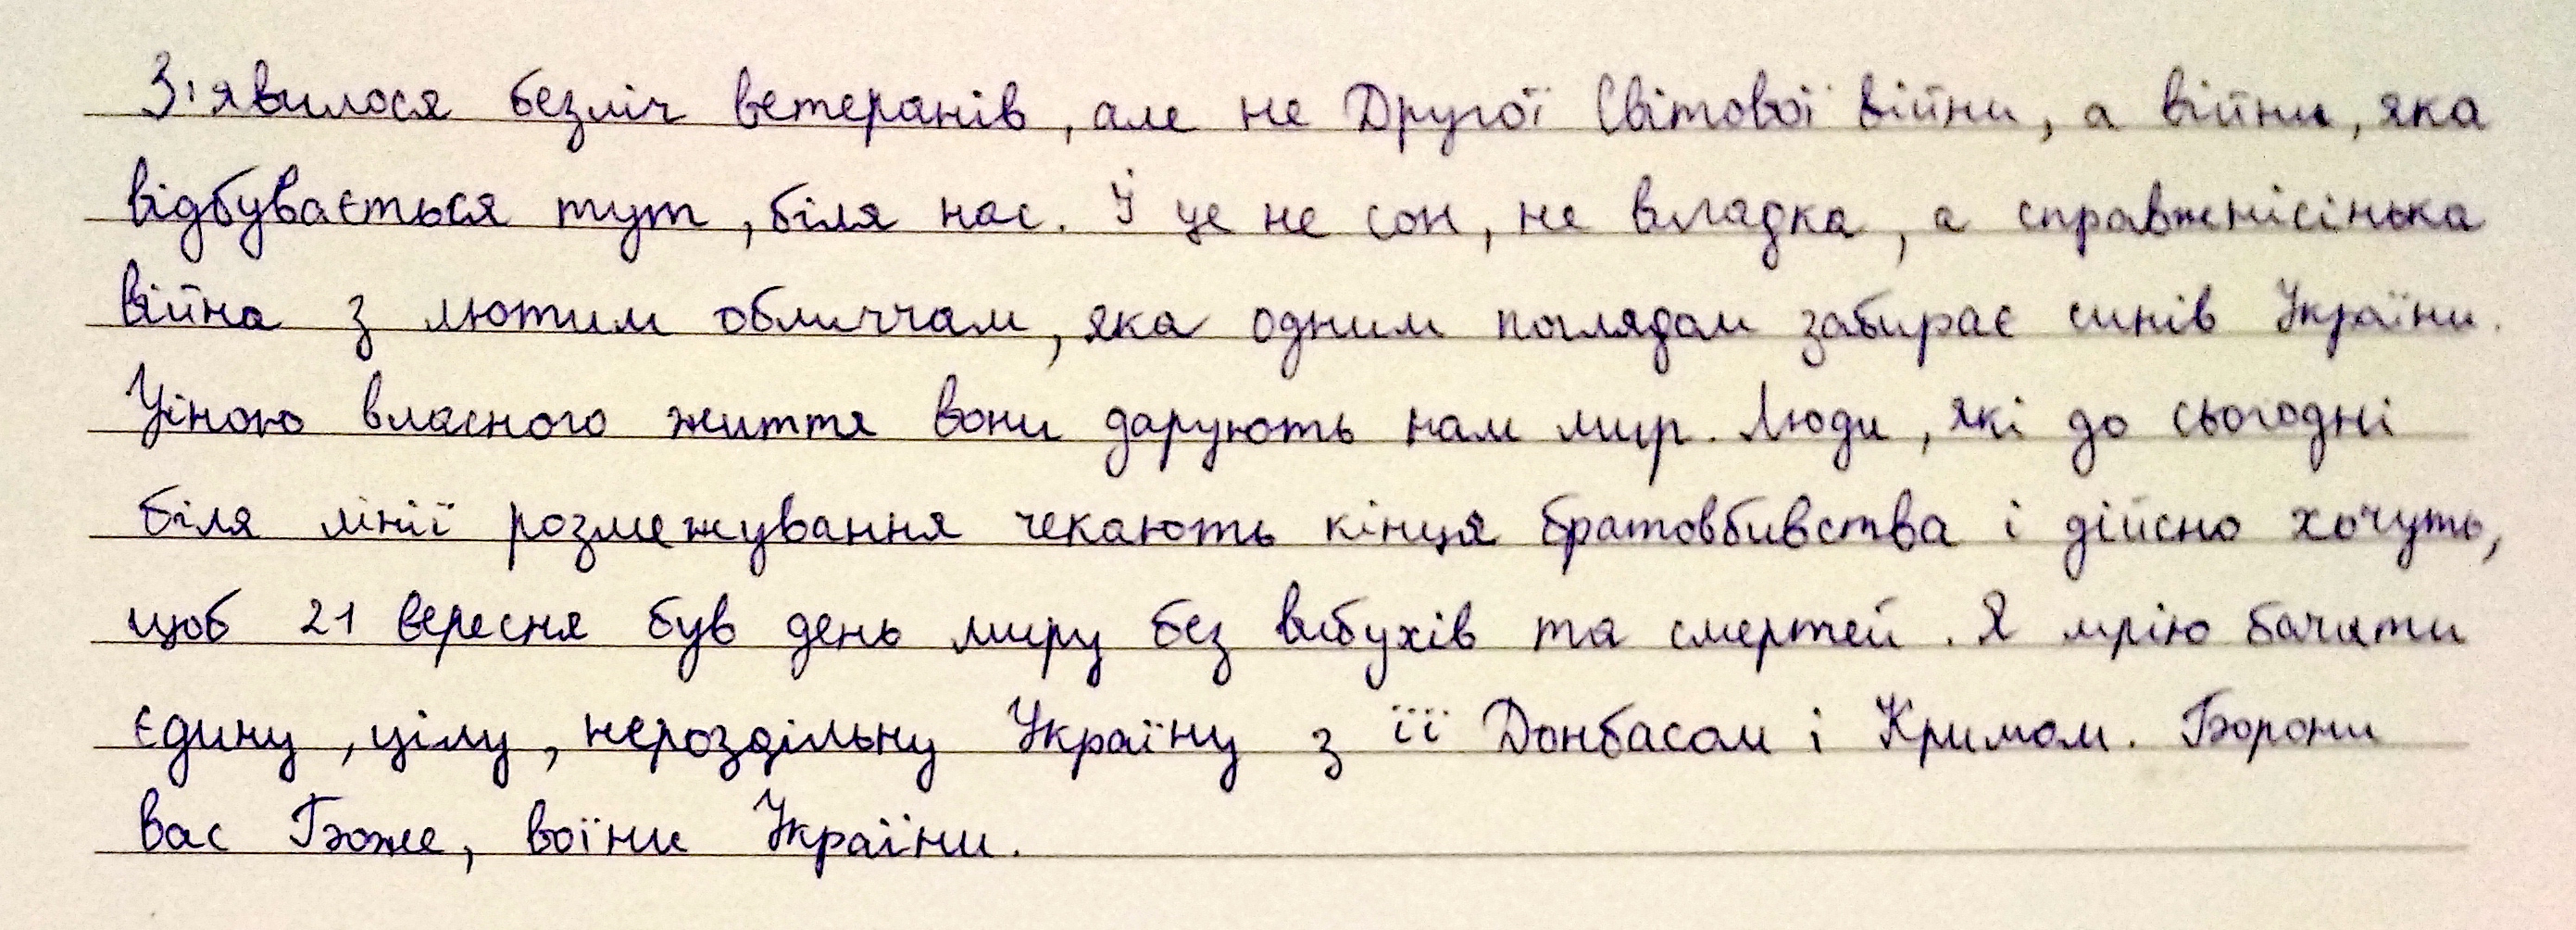 З'явилося безліч ветеранів, але не Другої Світової війни, а війни, яка
відбувається тут, біля нас. Й це не сон, не вигадка, а справжнісінька
війна з лютим обличчам, яка одним поглядом забирає синів України.
Ціною власного життя вони дарують нам мир. Люди, які до сьогодні
біля лінії розмежування чекають кінця братовбивства і дійсно хочуть,
щоб 21 вересня був день миру без вибухів та смертей. Я мрію бачити
єдину, цілу, нероздільну Україну з її Донбасом і Кримом. Борони
вас Боже, воїни України.